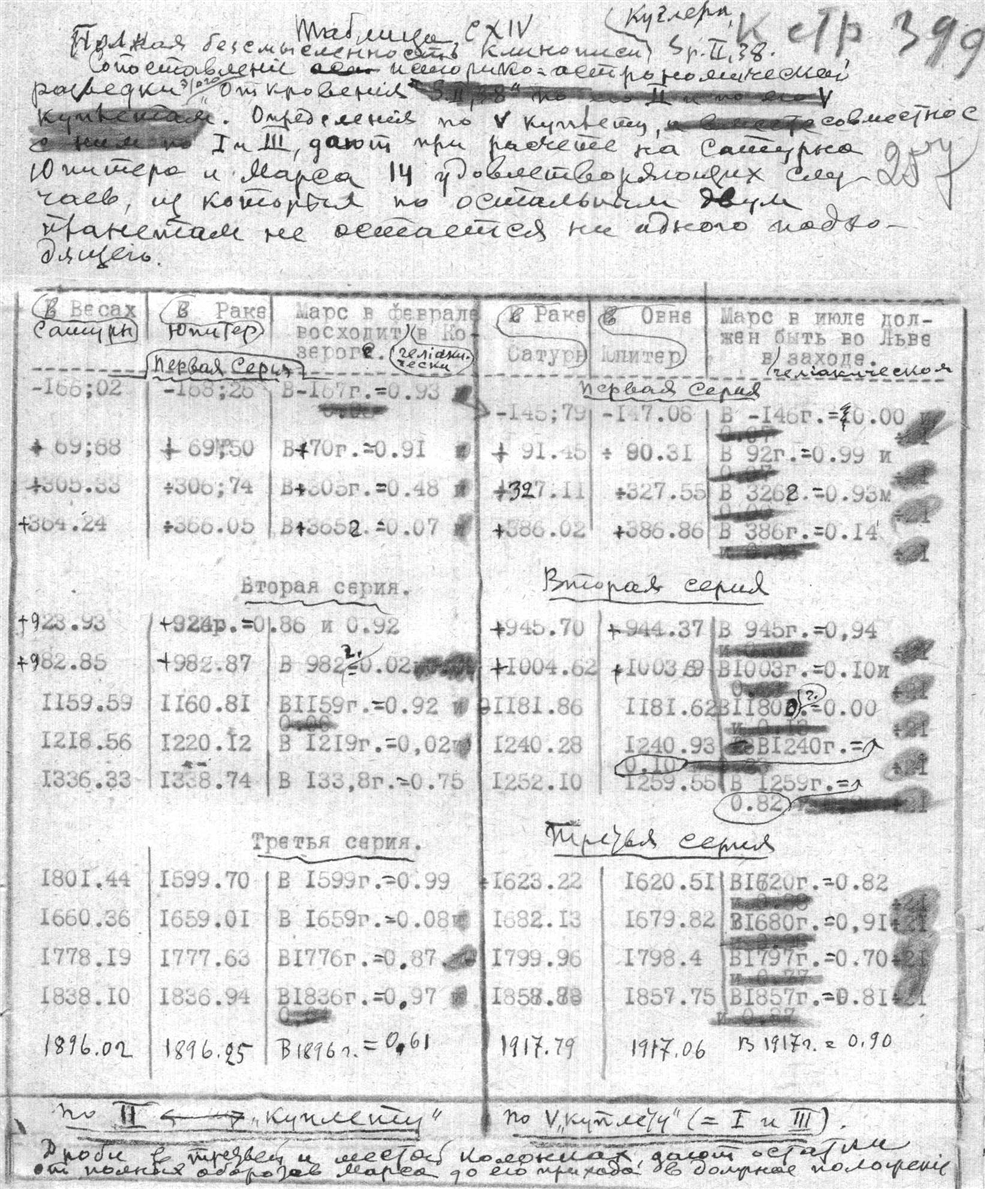 Таблица CXIV
К стр 399
Полная безсмысленность клинописи Куглера, Sp. II, 38.
Сопоставленiе историко-астрономической
разведки этого "Откровенiя
куплетам. Определенiя по V куплету, совместно с
I и III, дают при расчете на Сатурна
257
Юпитера и Марса 14 удовлетворяющих слу-
чаев, из которых по остальным двум
планетам не остается ни одного подхо-
дящего.
В Весах Сатурн | В Раке Юпитер | Марс в феврале восходит (в Козероге. гелiакически | В Раке Сатурн | В Овне Юпитер | Марс в июле должен быть во Льве в гелiакическом заходе.
Первая серия | Первая серия
-166;02 | -168;26 | В-167г.=0.93
-145;79 | -147.08 | В -146г.=0.00
+ 69;68 | + 69;50 | В+70г.=0.91 | + 91.45 | + 90.31 | В 92г.=0.99 и
+305.33 | +306;74 | В+305г.=0.48 | +327.11 | +327.55 | В 326г.=0.93
+364.24 | +366.05 | В+365г.=0.07 | +386.02 | +386.86 | В 386г.=0.14
Вторая серия. | Вторая серия
+923.93 | +924р.=0.86 и 0.92 | +945.70 | +944.37 | В 945г.=0,94
+982.85 | +982.87 | В 982г.=0.02 | +1004.62 | +1003.69 | В1003г.=0.10и
1159.59 | 1160.81 | В1159г.=0.92 | 1181.86 | 1181.62 | В1180г.=0.00
1218.56 | 1220.12 | В 1219г.=0,02 | 1240.28 | 1240.93 | В1240г.=
0.10
1336.33 | 1338.74 | В 133,8г.=0.75 | 1252.10 | 1259.55 | В 1259г.=
0.82
Третья серия. | Третья серия
1801.44 | 1599.70 | В 1599г.=0.99 | 1623.22 | 1620.51 | В1620г.=0.82
1660.36 | 1659.01 | В 1659г.=0.08 | 1682.13 | 1679.82 | В1680г.=0,91
1778.19 | 1777.63 | В1776г.=0.87 | 1799.96 | 1798.4 | В1797г.=0.70
1838.10 | 1836.94 | В1836г.=0,97 | 1857.75 | В1857г.=0.81
1896.02 | 1896.25 | В 1896г. = 0,61 | 1917.79 | 1917.06 | В 1917г. = 0.90
По II "куплету" | По V "куплету" (= I и III).
Дроби в третьей и шестой колонках дают остатки
от полных оборотов Марса до его прихода в должное положенiе